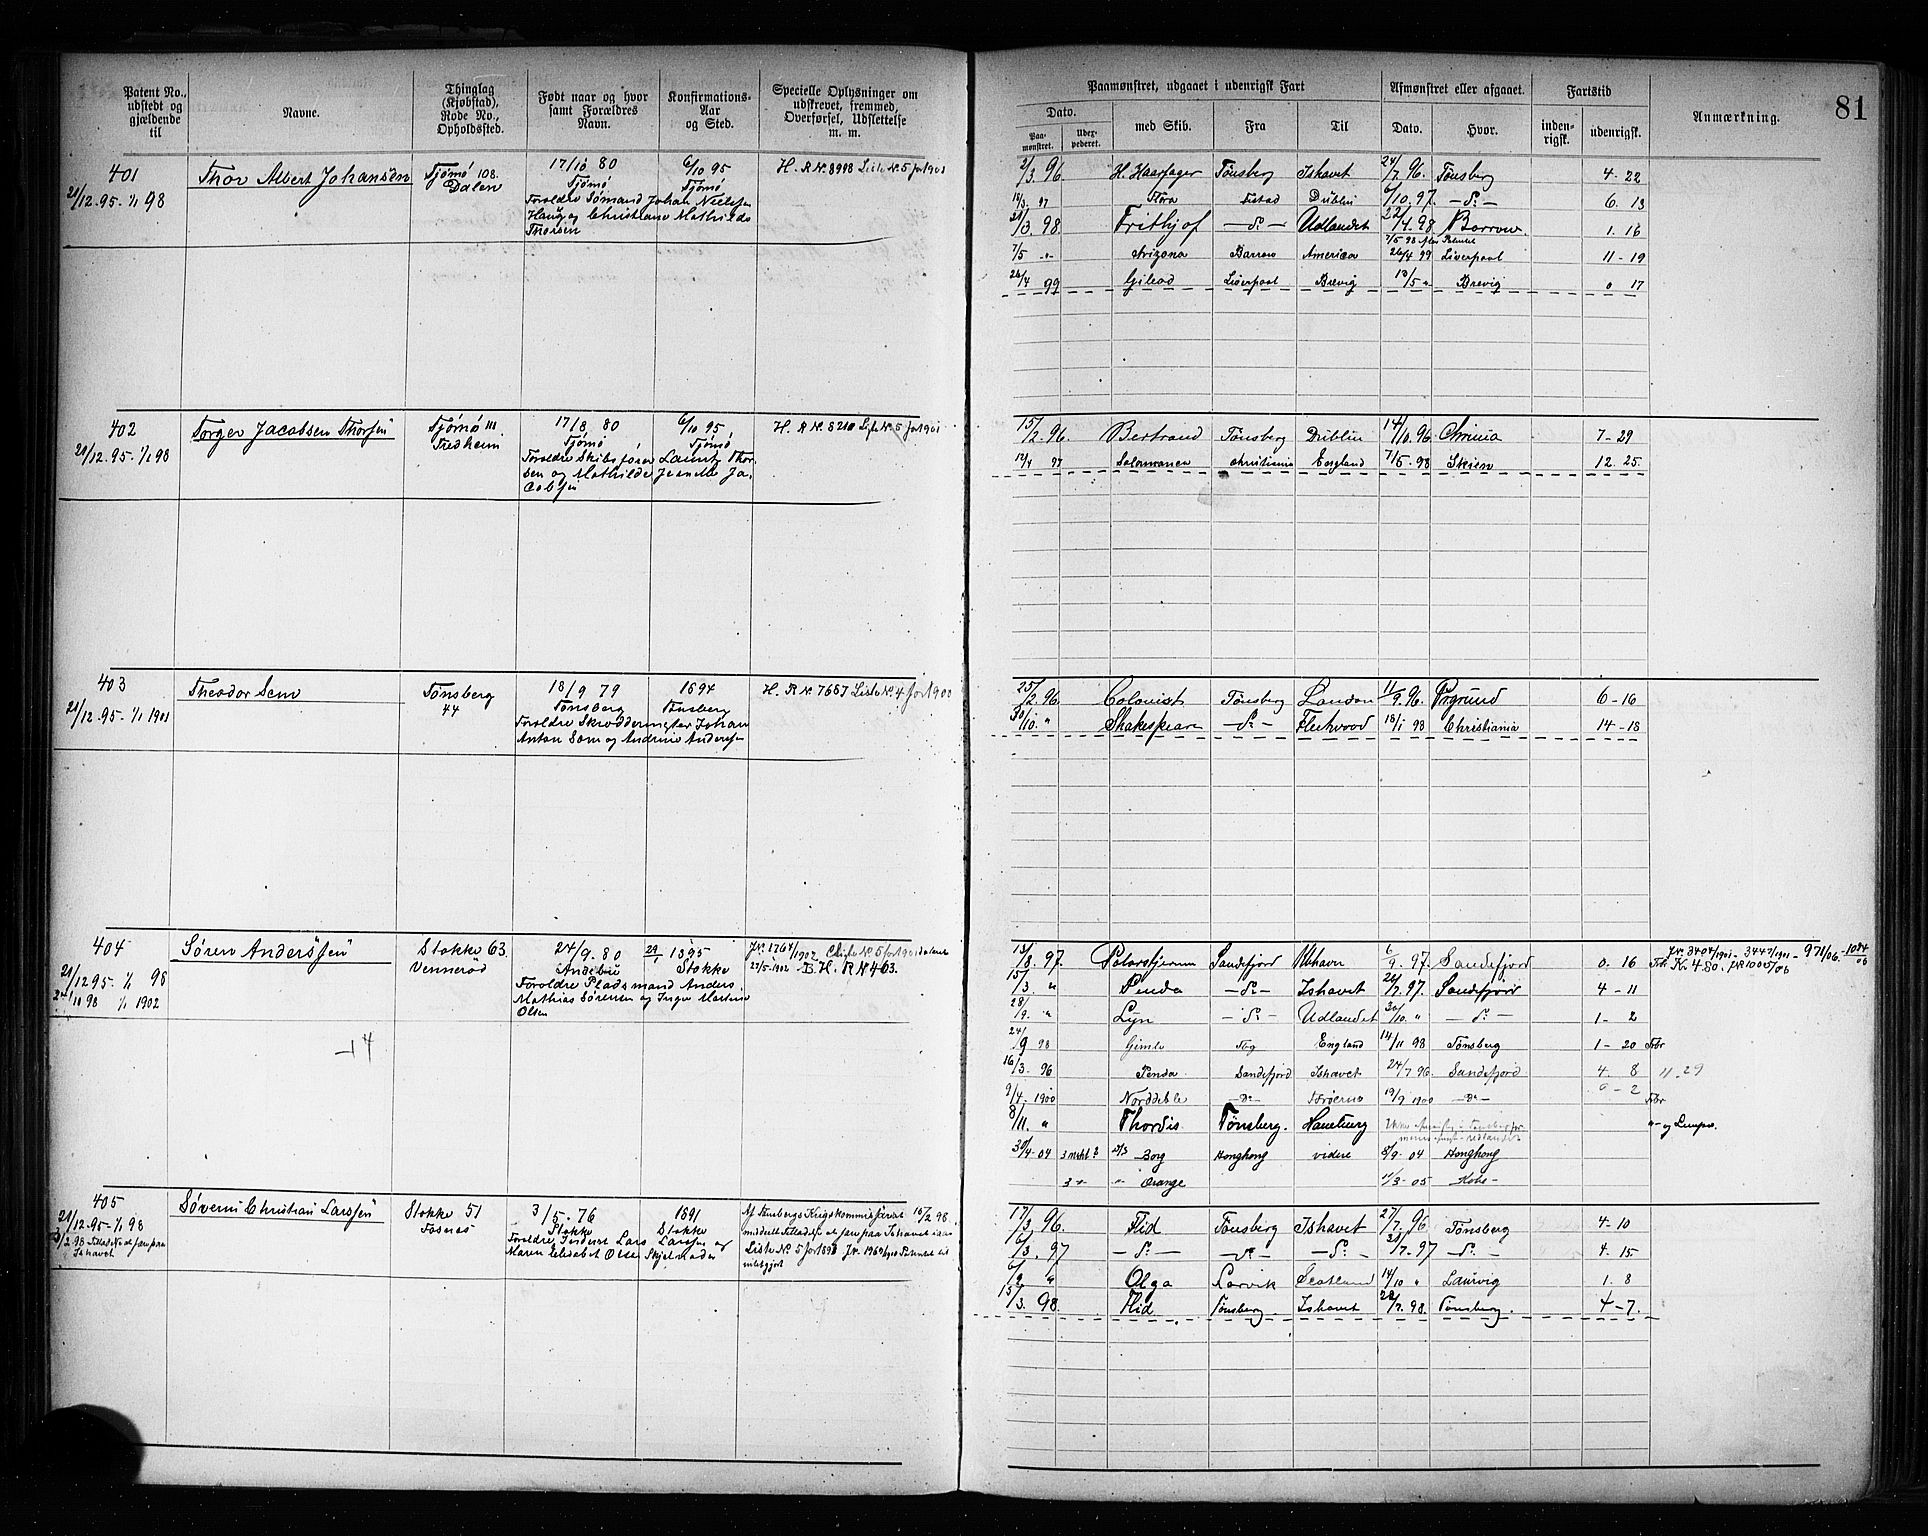 81
Patent No., udstedt og gjældende til
Navne.
Thinglag (Kjøbstad), Rode No., Opholdssted.
Født naar og hvor samt Forældres Navn.
Konfirmations-Aar og Sted.
Specielle Oplysninger om udskrevet, fremmed, Overførsel, Udslettelse m. m.
Paamønstret, udgaaet i udenrigsk Fart
Afmønstret eller afgaaet.
Fartstid
Anmærkning.
Dato.
Paa-mønstret.
Udex-pederet.
med Skib.
Fra
Til
Dato.
Hvor.
inden-rigsk.
udenrigsk.
401
21/12.95-1/1 98
Thor Albert Johansen
Tjømø 108.
Dalen
17/10 80
Tjømø
6/10 95
Tjømø
Forældre Sømand Johan Nielsen
Haug og Christiane Mathilde
Thorsen
H. R N. 8998 Liste N. 5 for 1901
2/3. 96. H. Haarfager Tønsberg Ishavet 24/7. 96. Tønsberg 4-22
16/3. 97 Flora Dublin 6/10. 97. -do- 6. 13
21/3. 98. Fritjof -do- Udlandet 22/4. 98 Barrow. 1. 16
7/5 " Arizona Barrow America 26/4 99 Liverpool 11-19
26/4 99 Gilead Liverpool Brevig 13/5 " Brevig 0 17
402
21/12.95-1/1 98
Torger Jacobsen Thorsen
Tjømø 111
Fredheim
17/8 80
Tjømø
6/10 95
Tjømø
Forældre Skibsfører Lauritz Thor-
sen og Mathilde Jeanette Ja-
cobsen
H. R N. 8210 Liste N. 5 for 1901
15/2. 96. Bertrand Tønsberg Dublin 14/10. 96. Chrinia 7-29
12/4 97 Salamanca Christiania England 7/5. 98 Skien 12. 25.
403
21/12.95-1/1 1901
Theodor Sem
Tønsberg
44
18/9 79
Tønsberg
1894
Tønsberg
Forældre Skræddermester Johan
Anton Sem og Andrine Andersen
H. R N. 7667 Liste N. 4 for 1900
25/2. 96. Colonist Tønsberg London 11/9. 96. Prgrund 6-16
30/10. " Shakespear -do- Fleetwood 18/1 98 Christiania 14-18
404
21/12 95-1/1 98
24/10 98 1/1 1902
Søren Anderssen
Stokke 63.
Vennerød
24/9. 80
Andebu
1895
Stokke
Forældre Pladsmand Anders
Mathias Sørensen og Inger Martine
Olsen
Jr. 1764/1902
27/5-1902 B. H. R N 463.
-14
Jr. 3404/1901 - 3447/1901 - 971/06. -1084/06
Kr 480. Jr 1005/06
13/8. 97. Polarstjernen Sandefjord Ishavn 6/9. 97. Sandefjord 0. 16
15/3. " Penda -do- Ishavet 26/7. 97. Sandefjord 4-11
28/9. " Lyn -do- Udlandet 30/10. " -do- 1-2
24/9 98 Gimle Tbg England 14/11 98 Tønsberg 1-20
16/3. 96 Penda Sandefjord Ishavet 24/7. 96. Sandefjord 4. 8 11. 29
9/4-1900 Norddeble -do- Færøerne 19/9 1900 -do- 0-2
8/11. " Thordis Tønsberg. Hamburg
30/4-04 Borg Honghong videre 8/9-04 Honghong
Orange 11/3-05 Kobe-
405
21/12.95-1/1 98
Søverin Christian Larssen
Stokke 51
Fosnæs
3/5-76
Stokke
1891
Stokke
Forældre Inderst Lars Larssen og
Maren Elisabet Olsen Skjelmoden
Af Tønsbergs Krigskommissariat 16/2 98
Liste N. 5 for 1898
17/3. 96. Flid Tønsberg Ishavet 27/7. 96 Tønsberg 4-10
6/3. 97 -do- -do- -do- 21/7. 97 -do- 4. 15
6/9 " Olga Larvik Scotland 14/10 " Laurvig 1. 8
15/3. 98. Flid Tønsberg. Ishavet 22/7. 98. Tønsberg. 4-7.